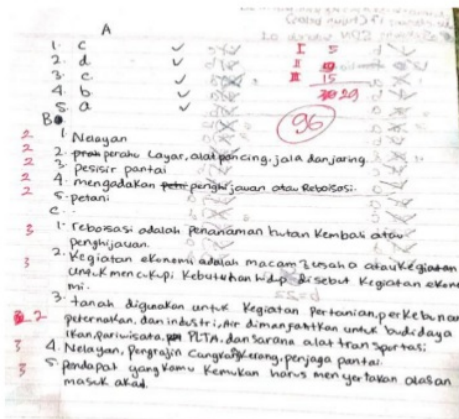 A
1. c
2. d
3. c
4. b
5. a
I 5
II
III 15
29
96
B
2 1. Nelayan
2 2. perahu Layar, alat pancing, jala dan jaring
2 3. pesisir pantai
2 4. mengadakan penghijauan atau Reboisosi.
2 5. petani
C.
3 1. reboisasi adalah penanaman hutan Kembali atau
penghijauan.
3 2. Kegiatan ekonomi adalah macam2 usaha atau Kegiatan
untuk mencukupi Kebutuhan hidup disebut Kegiatan ekono
mi.
2 3. tanah digunakan untuk Kegiatan Pertanian, perkebunan
peternakan, dan industri, Air dimanfaatkan untuk budidaya
Ikan, pariwisata, PLTA, dan sarana alat transportasi
3 4. Nelayan, Pengrajin Cangkang Kerang, penjaga pantai.
3 5. pendapat yang Kamu Kemukan harus menyertakan alasan
masuk akal.